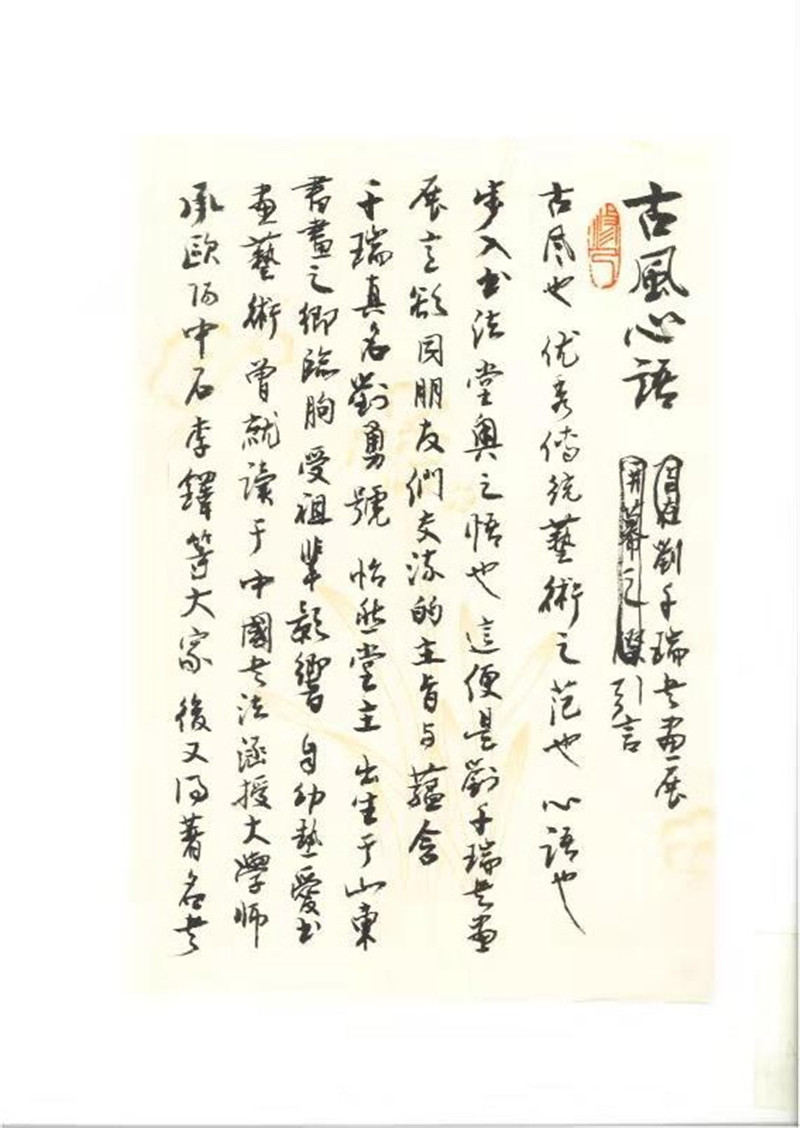 古風心語
劉千瑞书畫展
引言
古风也 优秀传统藝術之范也 心语也
步入书法堂奥之悟也 這便是劉千瑞书畫
展言欲同朋友們交流的主旨与蕴含
千瑞真名劉勇號 怡然堂主 出生于山東
書畫之鄉臨朐 受祖輩影響 自幼熱愛书
画藝術 曾就读于中國书法函授大學师
承歐阳中石李鐸等大家 後又得著名书